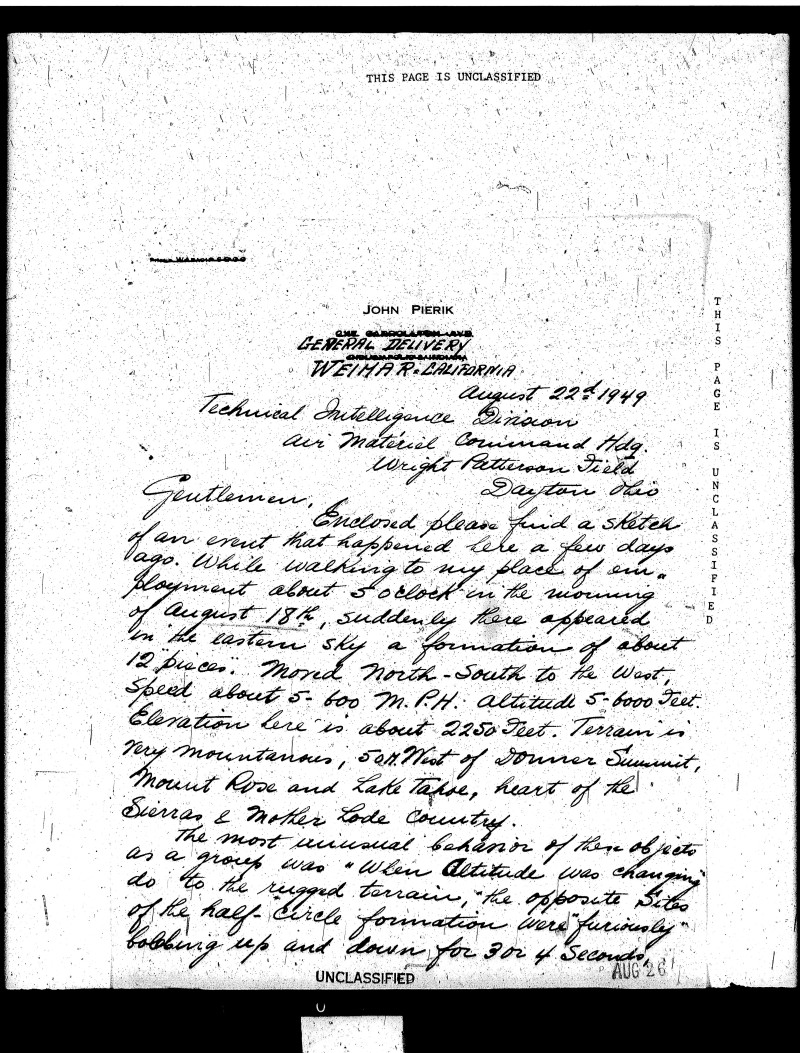 THIS PAGE IS UNCLASSIFIED
JOHN PIERIK
GENERAL DELIVERY
WEIMAR. CALIFORNIA
August 22d 1949
Technical Intelligence Division
Air Matériel Command Hdq.
Wright Patterson Field
Dayton Ohio
Gentlemen,
Enclosed please find a sketch
of an event that happened here a few days
ago. While walking to my place of em-
ployment about 5 oclock in the morning
of August 18th, suddenly there appeared
in the eastern sky a formation of about
12 "pieces". Moved North-South to the West,
Speed about 5-600 M.P.H. Altitude 5-6000 Feet.
Elevation here is about 2250 Feet. Terrain is
very mountanous, 50 M. West of Donner Summit,
Mount Rose and Lake Tahoe, heart of the
Sierras & Mother Lode Country.
The most unusual behavior of these objects
as a group was "When Altitude was changing
do to the rugged terrain," the opposite Sites
of the half-circle formation were "furiously"
bobbing up and down for 3 or 4 Seconds,
UNCLASSIFIED
AUG 26
THIS PAGE IS UNCLASSIFIED